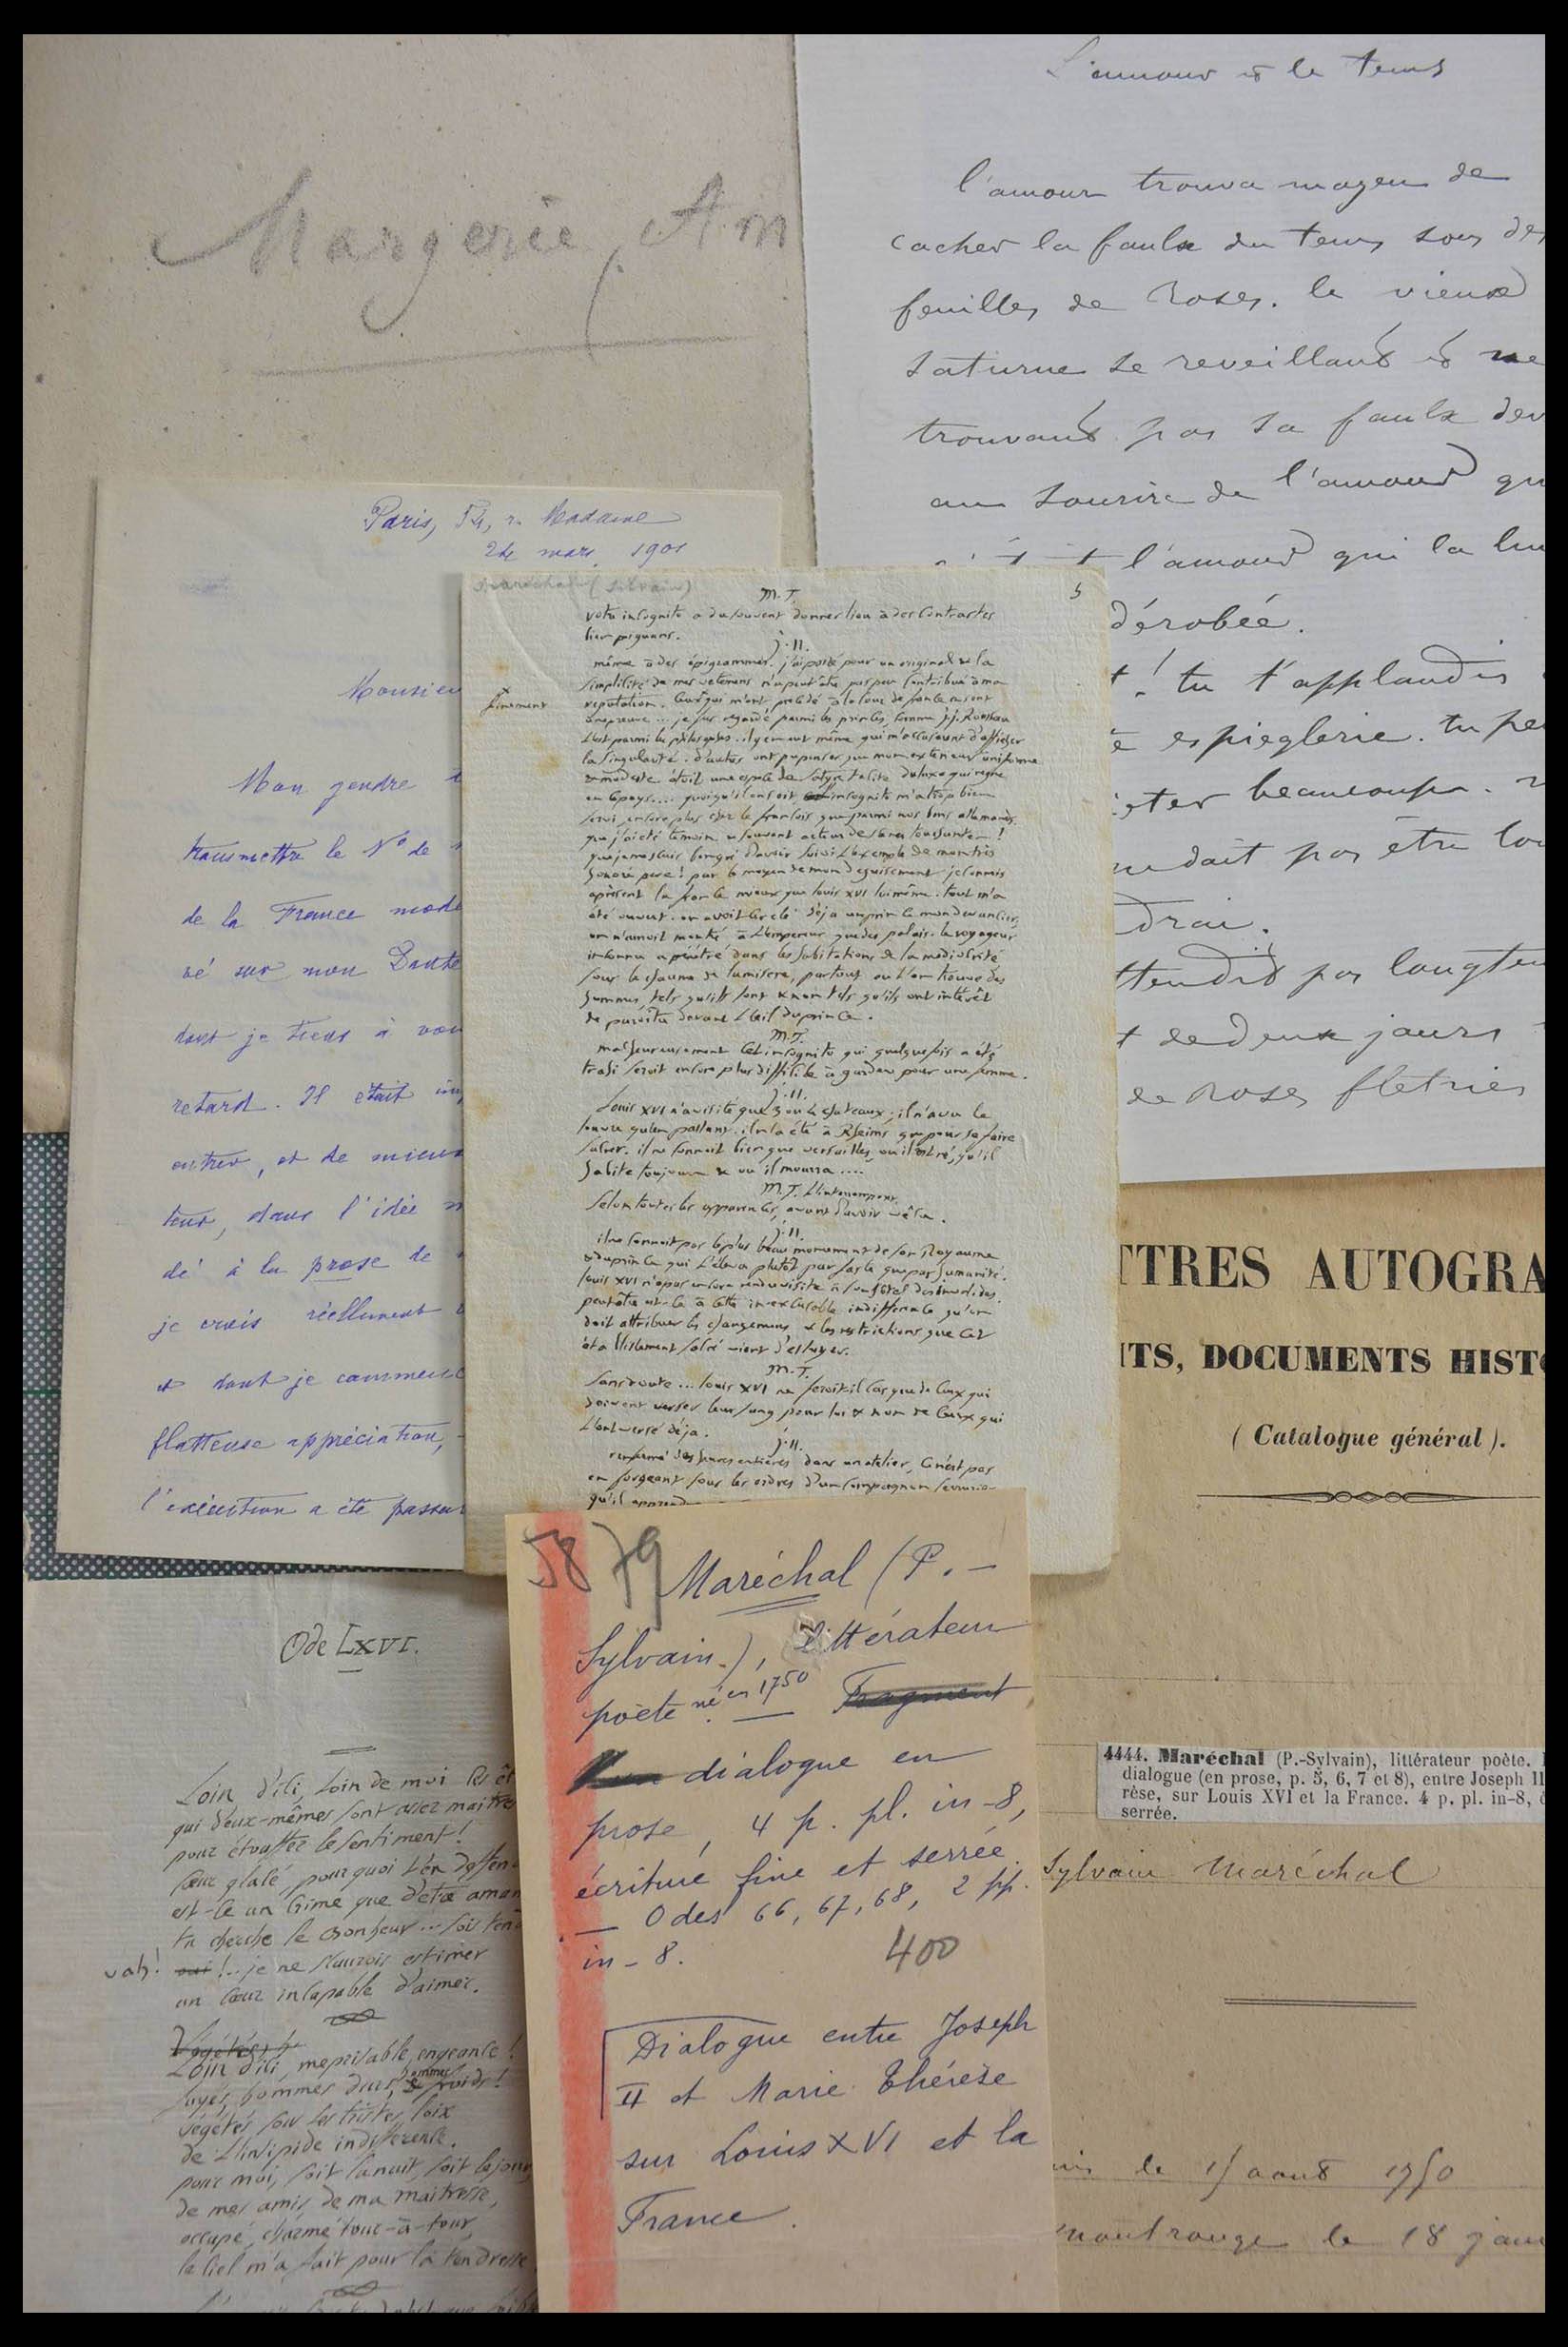 Margerie, Am
L'amour et le tems
l'amour trouva moyen de
cacher la faulx du tems sous des
feuilles de roses. le vieux
saturne se reveillant et ne
trouvant pas sa faulx dev
au sourire de l'amour qu
l'amour qui la lui
dérobée.
t! tu t'applaudis
espieglerie. tu pe
eter beaucoup.
pas être lon
drai.
ttendit pas longtem
t de deux jours
de roses flétries
Paris, 54, r. Madame
24 mars 1901
Monsieu
Mon gendre
transmettre le N° de
de la France mode
ré sur mon Dante
dont je tiens à vou
retard. Il était im
entrer, et de mieux
teur, dans l'idée
dé à la prose de
je crois réellement
et dont je commenc
flatteuse appréciation,
l'exécution a été passa
Maréchal (Silvain)
5
M.T.
votre incognito a du souvent donner lieu à des contrastes
bien piquans.
j.II.
même à des épigrammes. j'ai passé pour un original & la
simplicité de mes vetemens n'a peut être pas peu contribué à ma
finement
réputation. Ceux qui m'ont précédé à la cour de france
je fus regardé parmi les princes, comme j.j. Rousseau
L'est parmi les philosophes. il y en eut même qui m'accuserent d'afficher
la singularité. d'autres ont pu penser que mon exterieur uniforme
& modeste étoit une espece de satyre tacite du luxe qui regne
en ce pays.... quoiqu'il en soit, incognito m'a trop bien
servi, encore plus chez les francois que parmi nos bons allemands.
que j'ai été temoin & souvent acteur de scenes touchantes!
que je me sais bon gré d'avoir suivi l'exemple de mon très
honoré pere! par le moyen de mon deguisement je connois
apresent la france mieux que louis XVI lui même. tout m'a
été ouvert. on avoit
on n'auroit montré à l'Empereur que des palais. le voyageur
inconnu a pénétré dans les habitations de la médiocrité
sous le chaume de la misere, partout où l'on trouve des
hommes, tels qu'ils sont & non tels qu'ils ont intérêt
de paroitre devant l'œil du prince.
M.T.
malheureusement cet incognito qui quelquefois a été
trahi seroit encore plus difficile à garder pour une femme.
j.II.
Louis XVI n'a visité que 3 ou 4 chateaux; il n'a vu le
louvre qu'en passant. il n'a été à Rheims que pour se faire
sacrer. il ne connoit bien que versailles, où il est né, qu'il
habite toujours & où il mourra....
M.T. L'interrompant
Selon toutes les apparences, avant d'avoir vécu.
j.II.
il ne connoit pas le plus beau monument de son Royaume
& du prince qui l'éleva plutôt par faste que par humanité.
louis XVI n'a pas encore rendu visite à son hôtel des invalides.
peut être est-ce à cette inexcusable indifference qu'on
doit attribuer les changemens & les restrictions que cet
établissement sacré vient d'essuyer.
M.T.
Sans doute... louis XVI ne feroit-il cas que de Ceux qui
doivent verser leur sang pour lui & non de Ceux qui
L'ont versé déja.
j.II.
renfermé des heures entières dans un atelier, Ce n'est pas
en forgeant sous les ordres d'un compagnon serrurier
qu'il apprend
TTRES AUTOGRA
ITS, DOCUMENTS HISTO
( Catalogue général ).
5879
Maréchal (P. –
Sylvain.), littérateur
poète né en 1750 — Fragment
dialogue en
prose, 4 p. pl. in-8,
écriture fine et serrée.
— Odes 66, 67, 68, 2 pp.
in-8.
400
Dialogue entre Joseph
II et Marie Thérèse
sur Louis XVI et la
France.
4444. Maréchal (P.-Sylvain), littérateur poète.
dialogue (en prose, p. 5, 6, 7 et 8), entre Joseph II
rèse, sur Louis XVI et la France. 4 p. pl. in-8,
serrée.
Sylvain Maréchal
le 15 aout 1750
montrouge le 18 jan
Ode LXVI.
Loin d'ici, loin de moi les êt
qui d'eux-mêmes sont assez maitres
pour étouffer le sentiment!
Cœur glacé, pourquoi t'en deffen
est-ce un Crime que d'être aman
tu cherche le bonheur... sois ten
vah! oui!... je ne sçaurois estimer
un Cœur incapable d'aimer.
Végétés
Loin d'ici, meprisable engeance!
fuyés, hommes durs, hommes froids!
végétés sous les tristes loix
de L'insipide indifference.
pour moi, soit la nuit, soit le jour,
de mes amis, de ma maitresse,
occupé, charmé tour-à-tour,
le Ciel m'a fait pour la tendresse